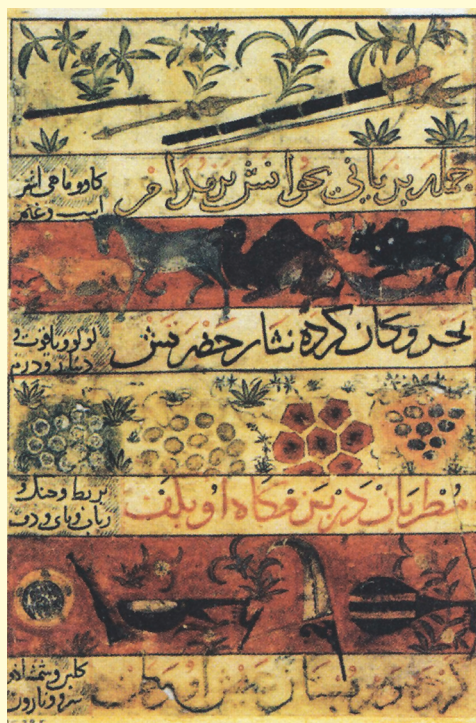 جمله بریانی بخوانش بر مدام
کاو و ماهی اشتر
اسب و غنم
بحر و کان کرده نثار حضرتش
لولو و یاقوت و
دینار و درم
مطربان در بزمکاه او بکف
بربط و چنک و
رباب و نای و دف
کرده در بستان او وطن
کلبن و شمشاد و
سرو و نارون